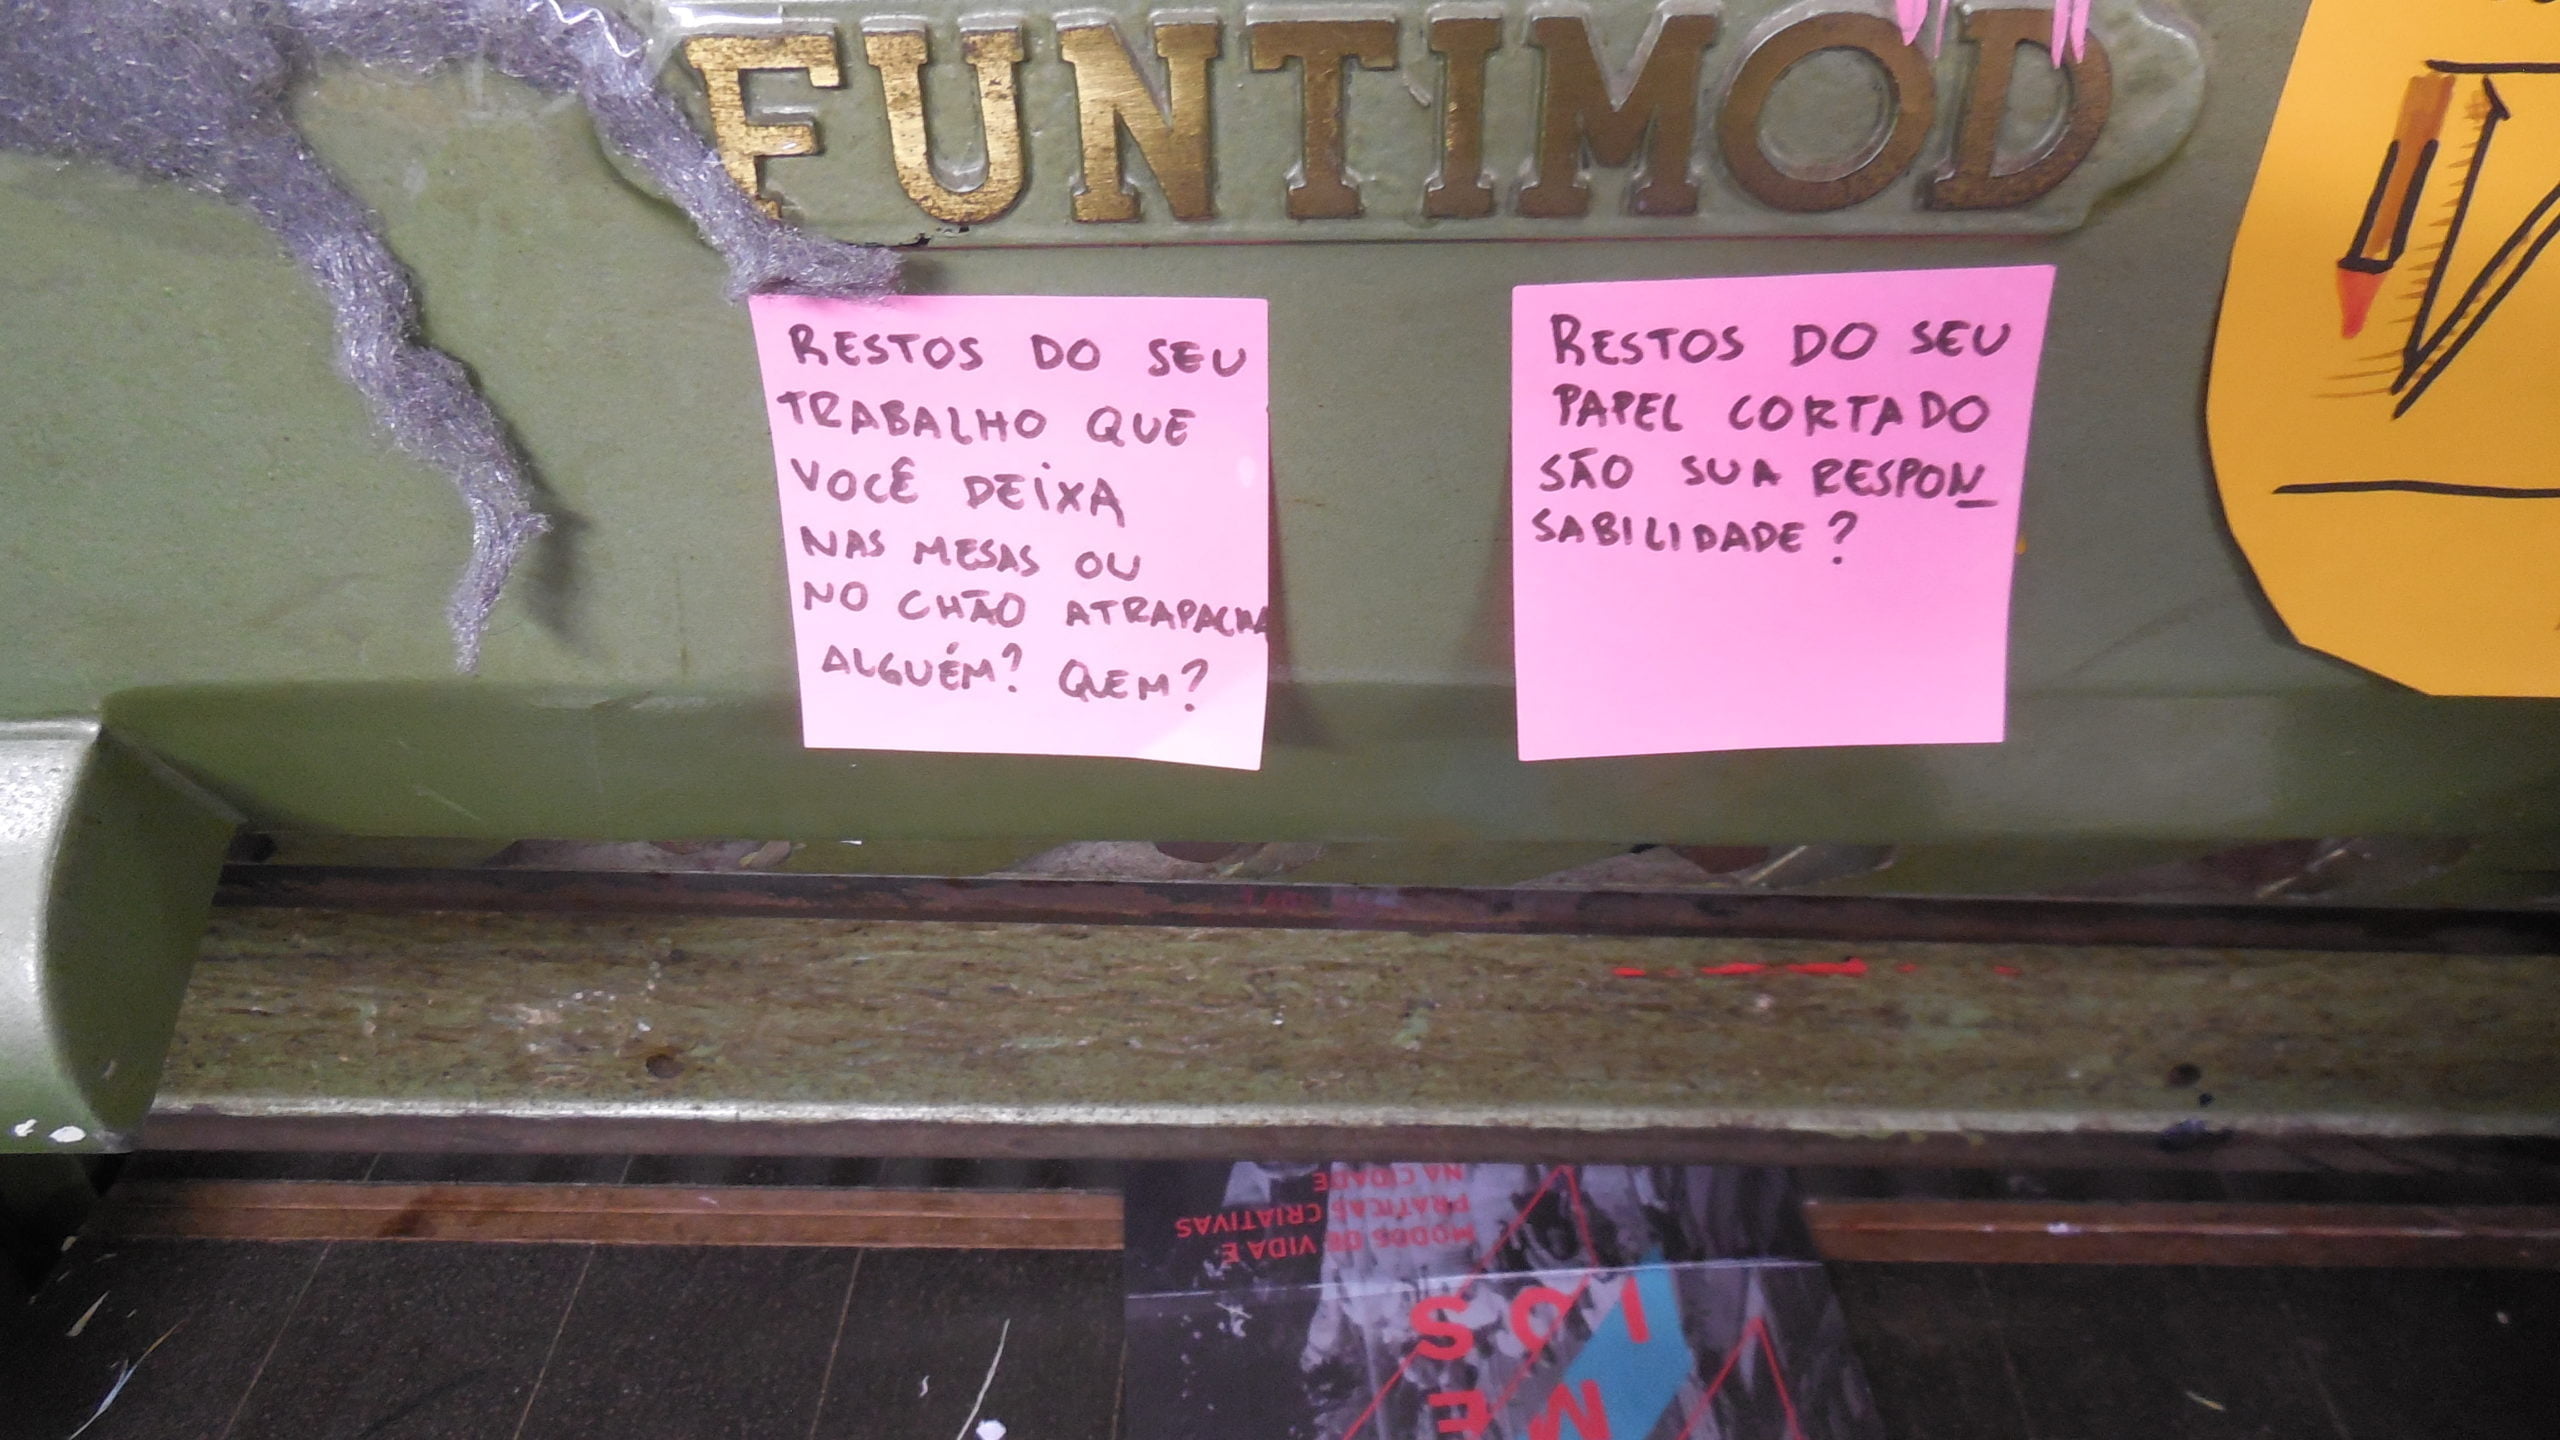 FUNTIMOD
RESTOS DO SEU
TRABALHO QUE
VOCÊ DEIXA
NAS MESAS OU
NO CHÃO ATRAPACHA
ALGUÉM? QUEM?
RESTOS DO SEU
PAPEL CORTADO
SÃO SUA RESPON
SABILIDADE?
MODOS DE VIDA E
PRÁTICAS CRIATIVAS
NA CIDADE